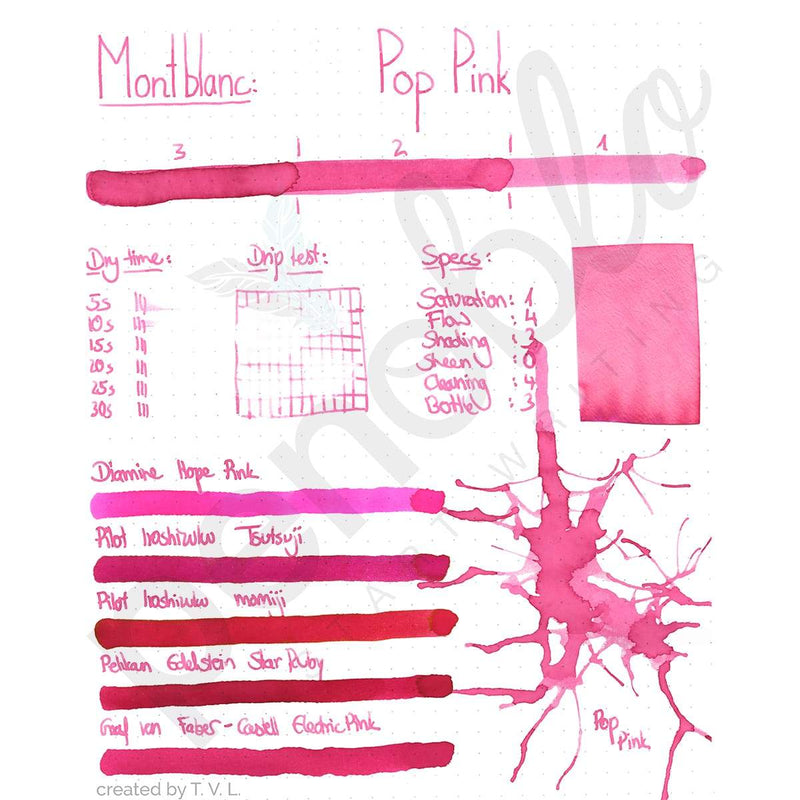 Montblanc: Pop Pink
3 2 1
Dry time: Drip test: Specs:
5s
10s
15s
20s
25s
30s
Saturation: 1
Flow : 4
Shading : 3
Sheen : 0
Cleaning : 4
Bottle : 3
Diamine Hope Pink
Pilot Iroshizuku Tsutsuji
Pilot Iroshizuku momiji
Pelikan Edelstein Star Ruby
Graf von Faber-Castell Electric Pink
Pop
Pink
penoblo
ART WRITING
created by T. V. L.